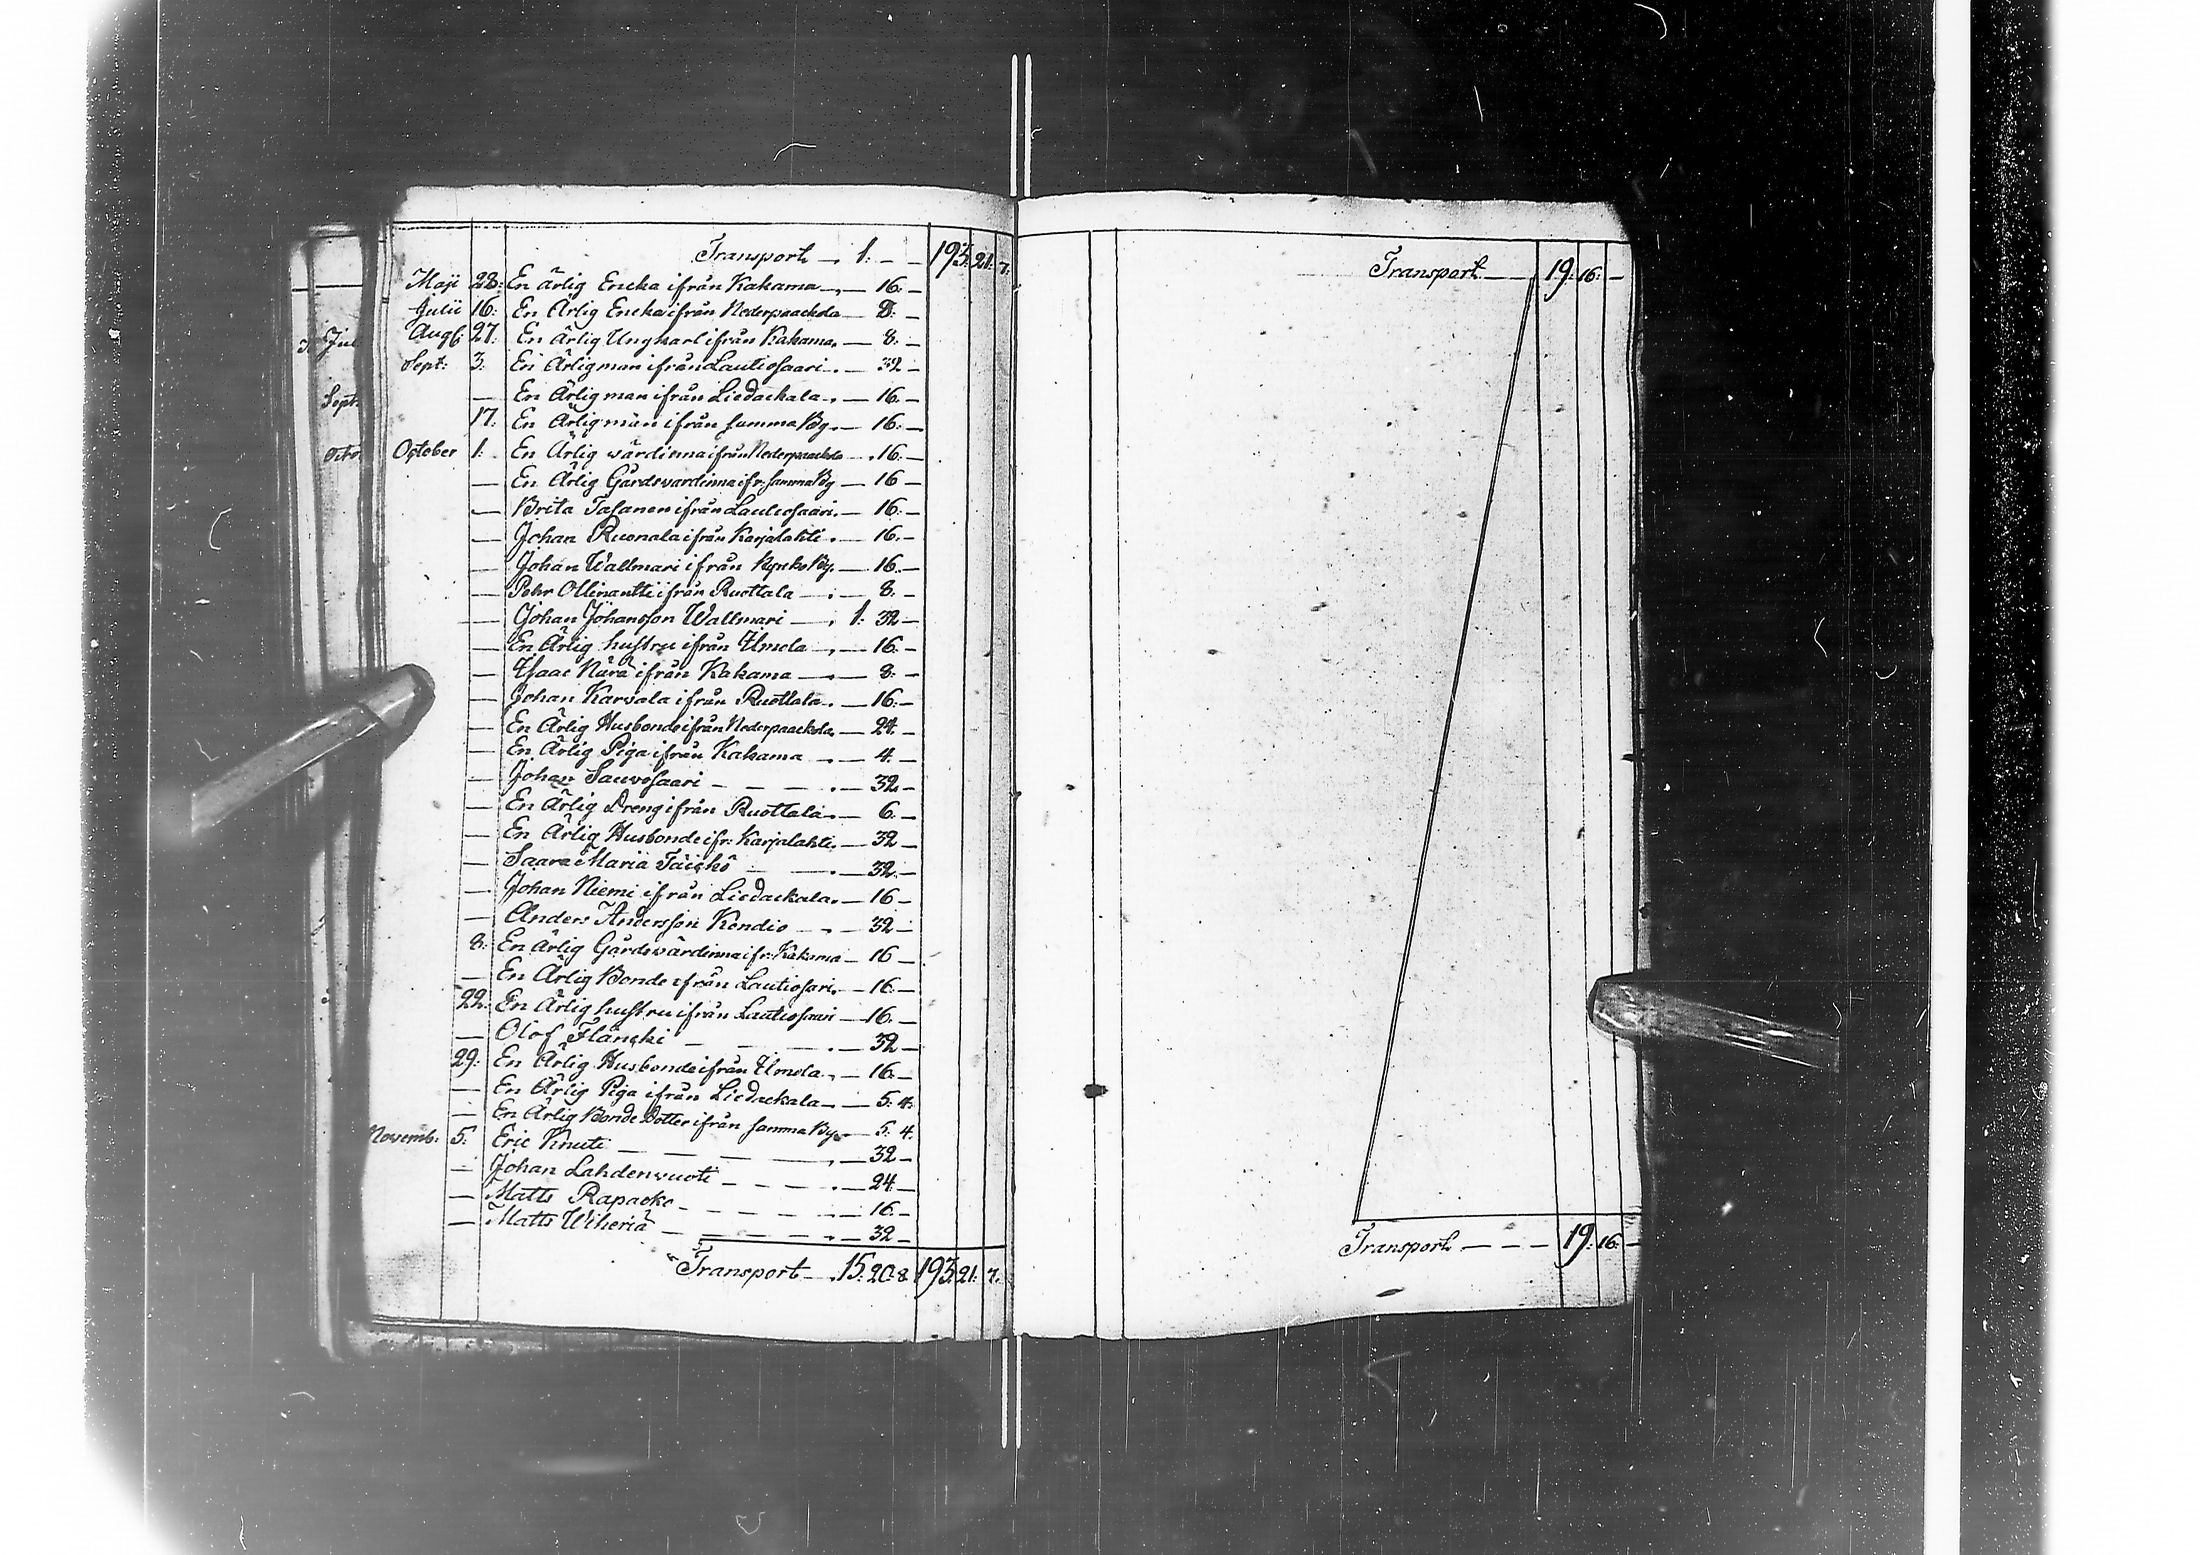 Transport 1: – – 193: 21: 7:
Maji 28: En ärlig Encka ifrån Kakama – 16: –
Julii 16: En Ärlig Encka ifrån Nederpaackola – 8: –
Aug: 27: En Ärlig Ungkarl ifrån Kakama – 8: –
Sept: 3: En Ärlig man ifrån Lautiosaari – 32 –
— En Ärlig man ifrån Liedackala – 16: –
17: En Ärlig man ifrån samma By – 16: –
October 1: En Ärlig wärdinna ifrån Nederpaackola – 16: –
— En Ärlig Gårdswardinna ifr: samma By – 16 –
— Brita Tasanen ifrån Lautiosaari – 16: –
— Johan Ruonala ifrån Karjalahti – 16: –
— Johan Wallmari ifrån Kyrko By – 16: –
— Pehr Ollinantti ifrån Ruottala – 8: –
— Johan Johansson Wallmari – 1: 32 –
— En Ärlig hustru ifrån Ilmola – 16: –
— Isaac Närä ifrån Kakama – 8: –
— Johan Karvala ifrån Ruottala – 16: –
— En Ärlig Husbonde ifrån Nederpaackola – 24: –
— En Ärlig Piga ifrån Kakama – 4: –
— Johan Sauvosaari – – – 32 –
— En Ärlig Dreng ifrån Ruottala – 6: –
— En Ärlig Husbonde ifr: Karjalahti – 32 –
— Saara Maria – 32: –
— Johan Niemi ifrån Liedackala – 16 –
— Anders Andersson Kondio – 32 –
8: En Ärlig Gårdswärdinna ifr: Kakama – 16 –
— En Ärlig Bonde ifrån Lautiosari – 16: –
22: En Ärlig hustru ifrån Lautiosaari – 16: –
— Olof – 32 –
29: En Ärlig Husbonde ifrån Ilmola – 16: –
— En Ärlig Piga ifrån Liedackala – 5: 4:
— En Ärlig Bonde Dotter ifrån samma By – 5: 4:
Novemb: 5: Eric Knuti – – – 32 –
— Johan Lahdenvuoti – – – 24 –
— Matts Rapacko – – – 16: –
— Matts Wiheriä – – – 32 –
Transport – 15: 20: 8 193: 21: 7:
Jul
Sept:
Octo
Transport – 19: 16: –
Transport – – – 19: 16: –